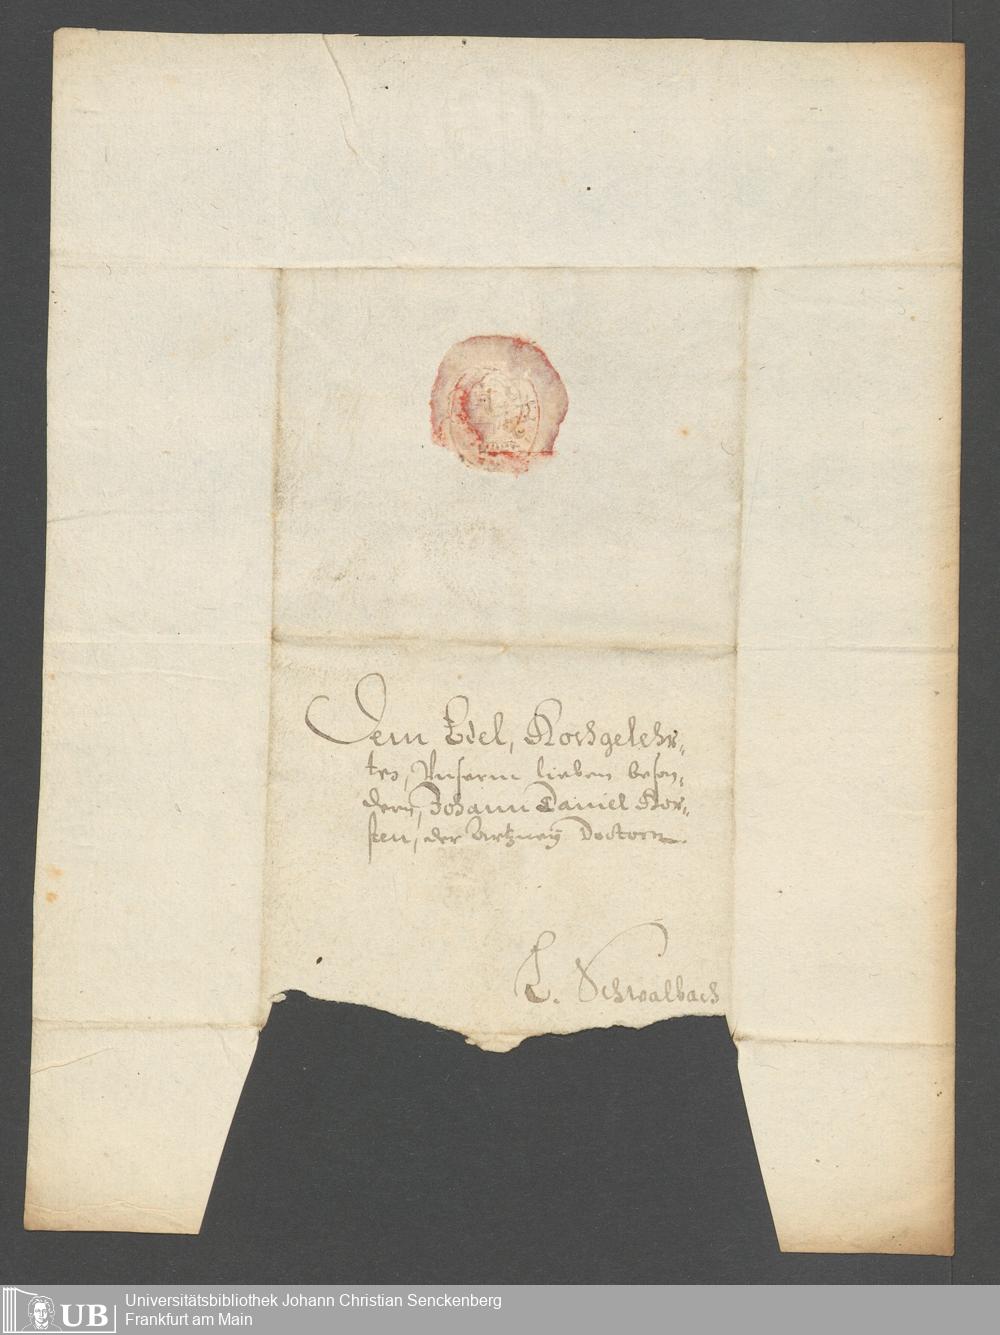 Dem Edel, Hochgelehr-
ten, Unserm lieben beson-
dern, Johann Daniel Hor-
sten, der Artzney Doctorn
L. Schwalbach
UB
Universitätsbibliothek Johann Christian Senckenberg
Frankfurt am Main